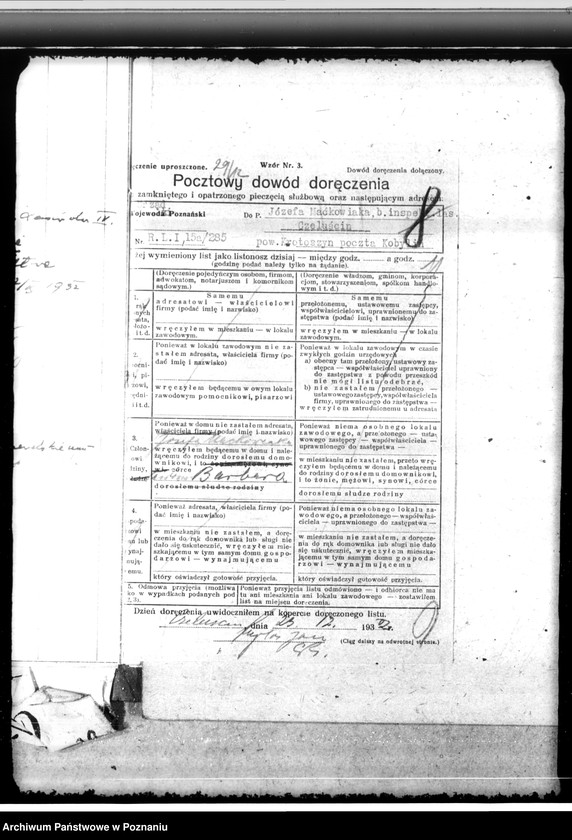 Wzór Nr. 3.
Dowód doręczenia dołączony.
Pocztowy dowód doręczenia
zamkniętego i opatrzonego pieczęcią służbową oraz następującym adresem:
Poznański
Do P. Józefa Maćkowiaka, b.
Czeluścin
Nr. R.L.I,15a/285
pow. Krotoszyn poczta Kobylin
żej wymieniony list jako listonosz dzisiaj — między godz. a godz. 11
(godzinę podać należy tylko na żądanie).
(Doręczenie pojedyńczym osobom, firmom, adwokatom, notarjuszom i komornikom sądowym.)
(Doręczenie władzom, gminom, korporacjom, stowarzyszeniom, spółkom handlowym i t. d.)
1.
Samemu
adresatowi — właścicielowi
firmy (podać imię i nazwisko)
wręczyłem w mieszkaniu — w lokalu
zawodowym.
Samemu
przełożonemu, ustawowemu zastępcy,
współwłaścicielowi, uprawnionemu do zastępstwa (podać imię i nazwisko)
wręczyłem w mieszkaniu — w lokalu
zawodowym.
2.
Ponieważ w lokalu zawodowym nie zastałem adresata, właściciela firmy (podać imię i nazwisko)
wręczyłem będącemu w owym lokalu
zawodowym pomocnikowi, pisarzowi
Ponieważ w lokalu zawodowym w czasie
zwykłych godzin urzędowych
a) obecny tam przełożony, ustawowy zastępca — współwłaściciel uprawniony
do zastępstwa z powodu przeszkód
nie mógł listu odebrać,
b) nie zastałem przełożonego —
ustawowego zastępcy, współwłaściciela
firmy, uprawnionego do zastępstwa —
wręczyłem zatrudnionemu u adresata
3.
Ponieważ w domu nie zastałem adresata,
właściciela firmy (podać imię i nazwisko)
wręczyłem będącemu w domu i należącemu
do rodziny dorosłemu domownikowi, i to
córce
Barbara
dorosłemu słudze rodziny
Ponieważ niema osobnego lokalu
zawodowego, a przełożonego — ustawowego zastępcy — współwłaściciela —
uprawnionego do zastępstwa —
w mieszkaniu nie zastałem, przeto wręczyłem będącemu w domu i należącemu
do rodziny dorosłemu domownikowi
i to żonie, mężowi, synowi, córce
dorosłemu słudze rodziny
4.
Ponieważ adresata, właściciela firmy (podać imię i nazwisko)
w mieszkaniu nie zastałem, a doręczenia do rąk domownika lub sługi nie
dało się uskutecznić, wręczyłem mieszkającemu w tym samym domu gospodarzowi — wynajmującemu
który oświadczył gotowość przyjęcia.
Ponieważ niema osobnego lokalu zawodowego, a przełożonego — współwłaściciela — uprawnionego do zastępstwa —
w mieszkaniu nie zastałem, a doręczenia do rąk domownika lub sługi nie dało
się uskutecznić, wręczyłem mieszkającemu w tym samym domu gospodarzowi — wynajmującemu
który oświadczył gotowość przyjęcia.
5. Odmowa przyjęcia (możliwa
ko w wypadkach podanych pod
Ponieważ przyjęcia listu odmówiono — i odbiorca nie ma
tu ani mieszkania ani lokalu zawodowego — zostawiłem
list na miejscu doręczenia.
Dzień doręczenia uwidoczniłem na kopercie doręczonego listu.
dnia 23. 12. 193
(Ciąg dalszy na odwrotnej stronie.)
Archiwum Państwowe w Poznaniu